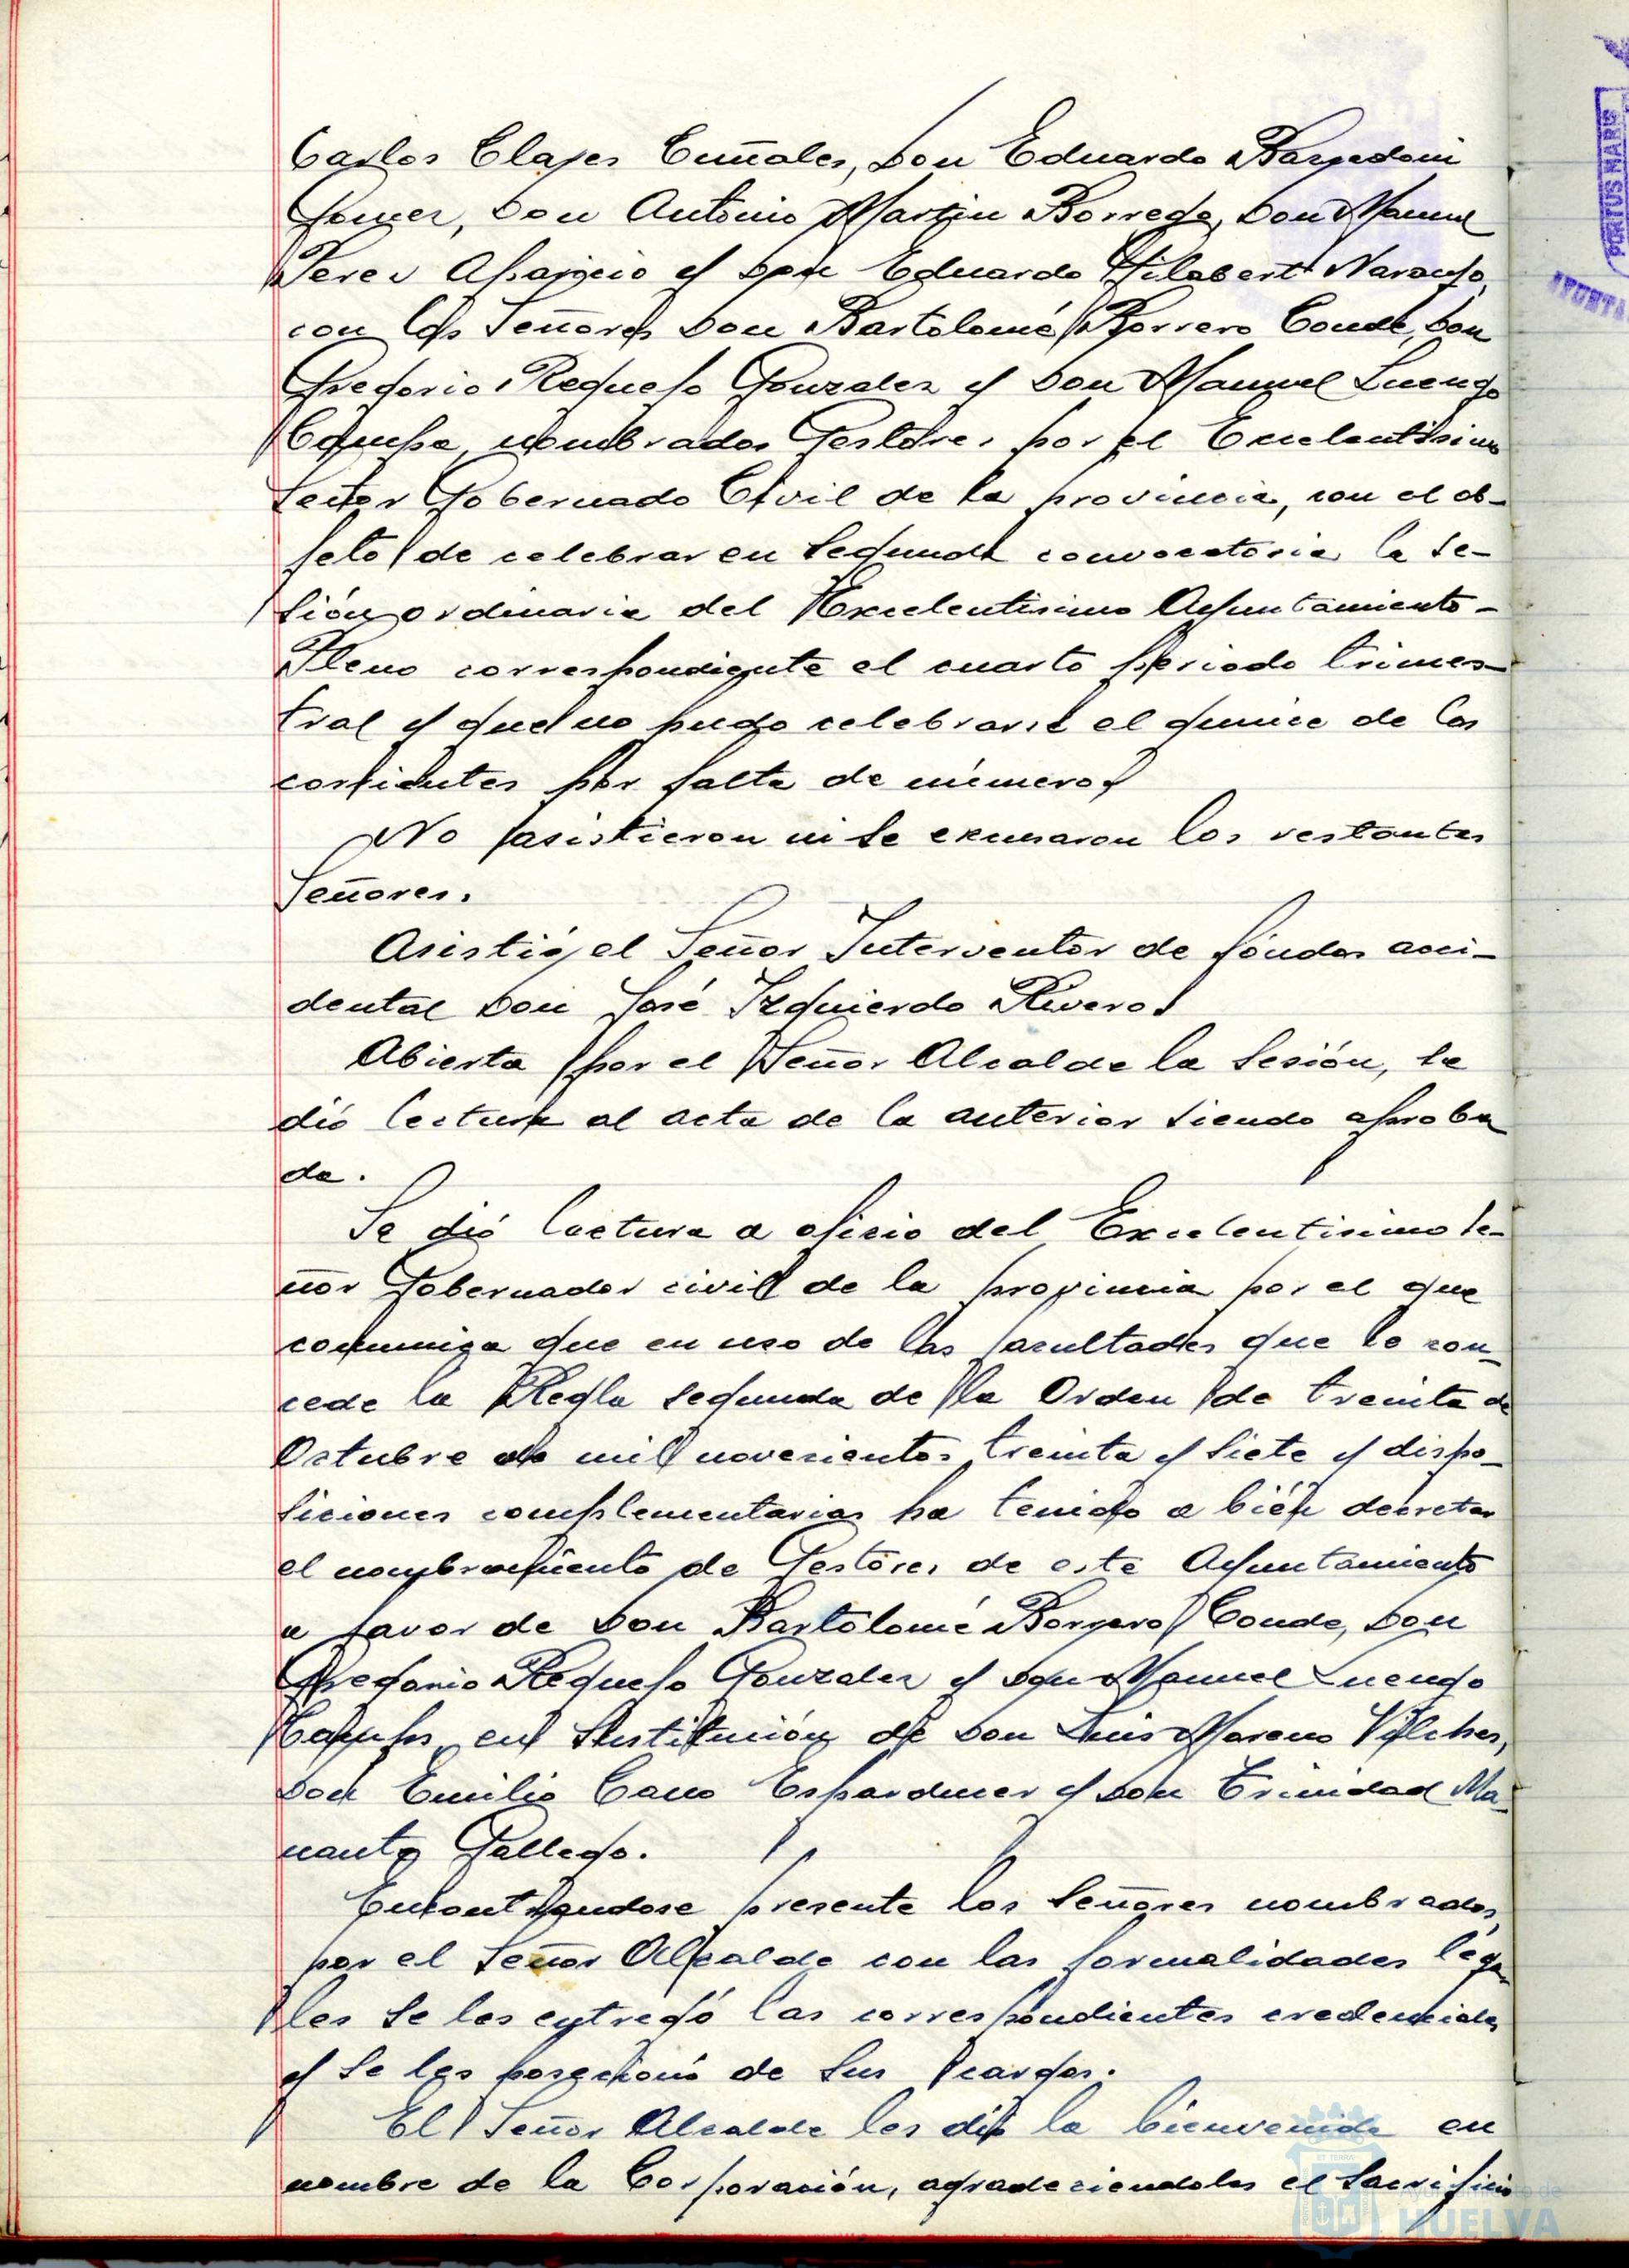 Carlos Clares Cuñales, Don Eduardo Bargadoni
Gomez, Don Antonio Martin Borrego, Don Manuel
Perez Aparicio y Don Eduardo Gilabert Naranjo,
con los Señores Don Bartolomé Borrero Conde, Don
Gregorio Requejo Gonzalez y Don Manuel Luengo
nombrados Gestores por el Excelentisimo
Señor Gobernado Civil de la provincia, con el ob-
jeto de celebrar en segunda convocatoria la se-
sión ordinaria del Excelentisimo Ayuntamiento-
Pleno correspondiente el cuarto periodo trimes-
tral y que no pudo celebrarse el quince de los
corrientes por falta de número.
No asistieron ni se excusaron los restantes
Señores.
Asistió el Señor Interventor de fondos acci-
dental Don José Izquierdo Rivero.
Abierta por el Señor Alcalde la sesión, se
dió lectura al acta de la anterior siendo aproba
da.
Se dió lectura a oficio del Excelentisimo Se-
ñor Gobernador civil de la provincia por el que
comunica que en uso de las facultades que le con-
cede la Regla segunda de la Orden de treinta de
Octubre de mil novecientos treinta y siete y dispo-
siciones complementarias ha tenido a bién decretar
el nombramiento de Gestores de este Ayuntamiento
a favor de Don Bartolomé Borrero Conde, Don
Gregorio Requejo Gonzalez y Don Manuel Luengo
en sustitución de Don Luis Moreno Vilches,
Don Emilio Cano Esparducer y Don Trinidad Ma-
nanto Gallego.
Encontrandose presente los Señores nombrados,
por el Señor Alcalde con las formalidades lega
les se les entregó las correspondientes credenciales
y se les posecionó de sus cargos.
El Señor Alcalde les dió la bienvenida en
nombre de la Corporación, agradeciendoles el sacrificio
PORTUS MARIS
AYUNTA
HUELVA